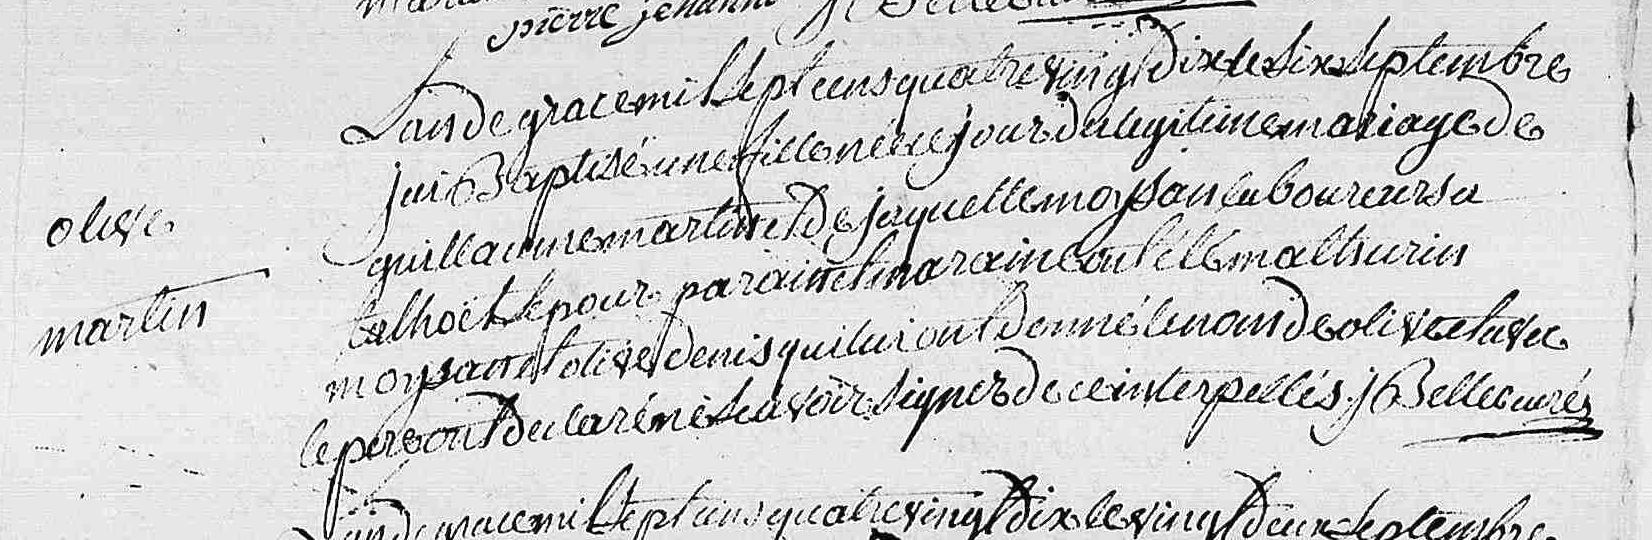 pierre jehanno j Belle
Lan de grace mil sept cens quatre vingt dix le six septembre
jai Baptisé une fille née ce jour du legitime mariage de
olive
guillaume martin et De jaquette moysan laboureurs a
talhoët et pour parain et maraine ont été mathurin
martin
moysan et olive denis qui lui ont donné le nom de olive et avec
le pere ont declaré ne scavoir signer de ce interpellés j Belle curé
Lan de grace mil sept cens quatre vingt dix le vingt deux septembre